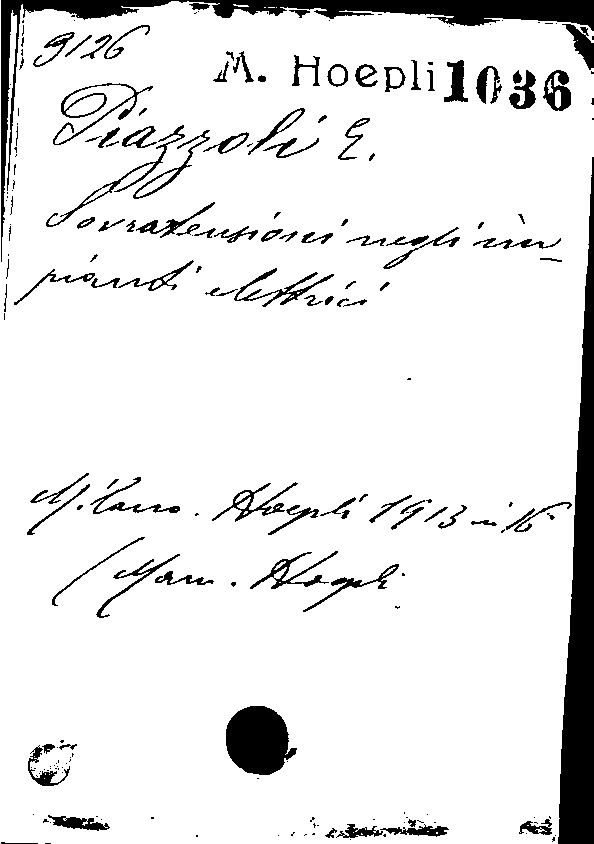 9126
M. Hoepli 1036
Piazzoli E.
Sovratensioni negli im-
pianti elettrici
Milano. Hoepli 1913 in 16°
(Man. Hoepli